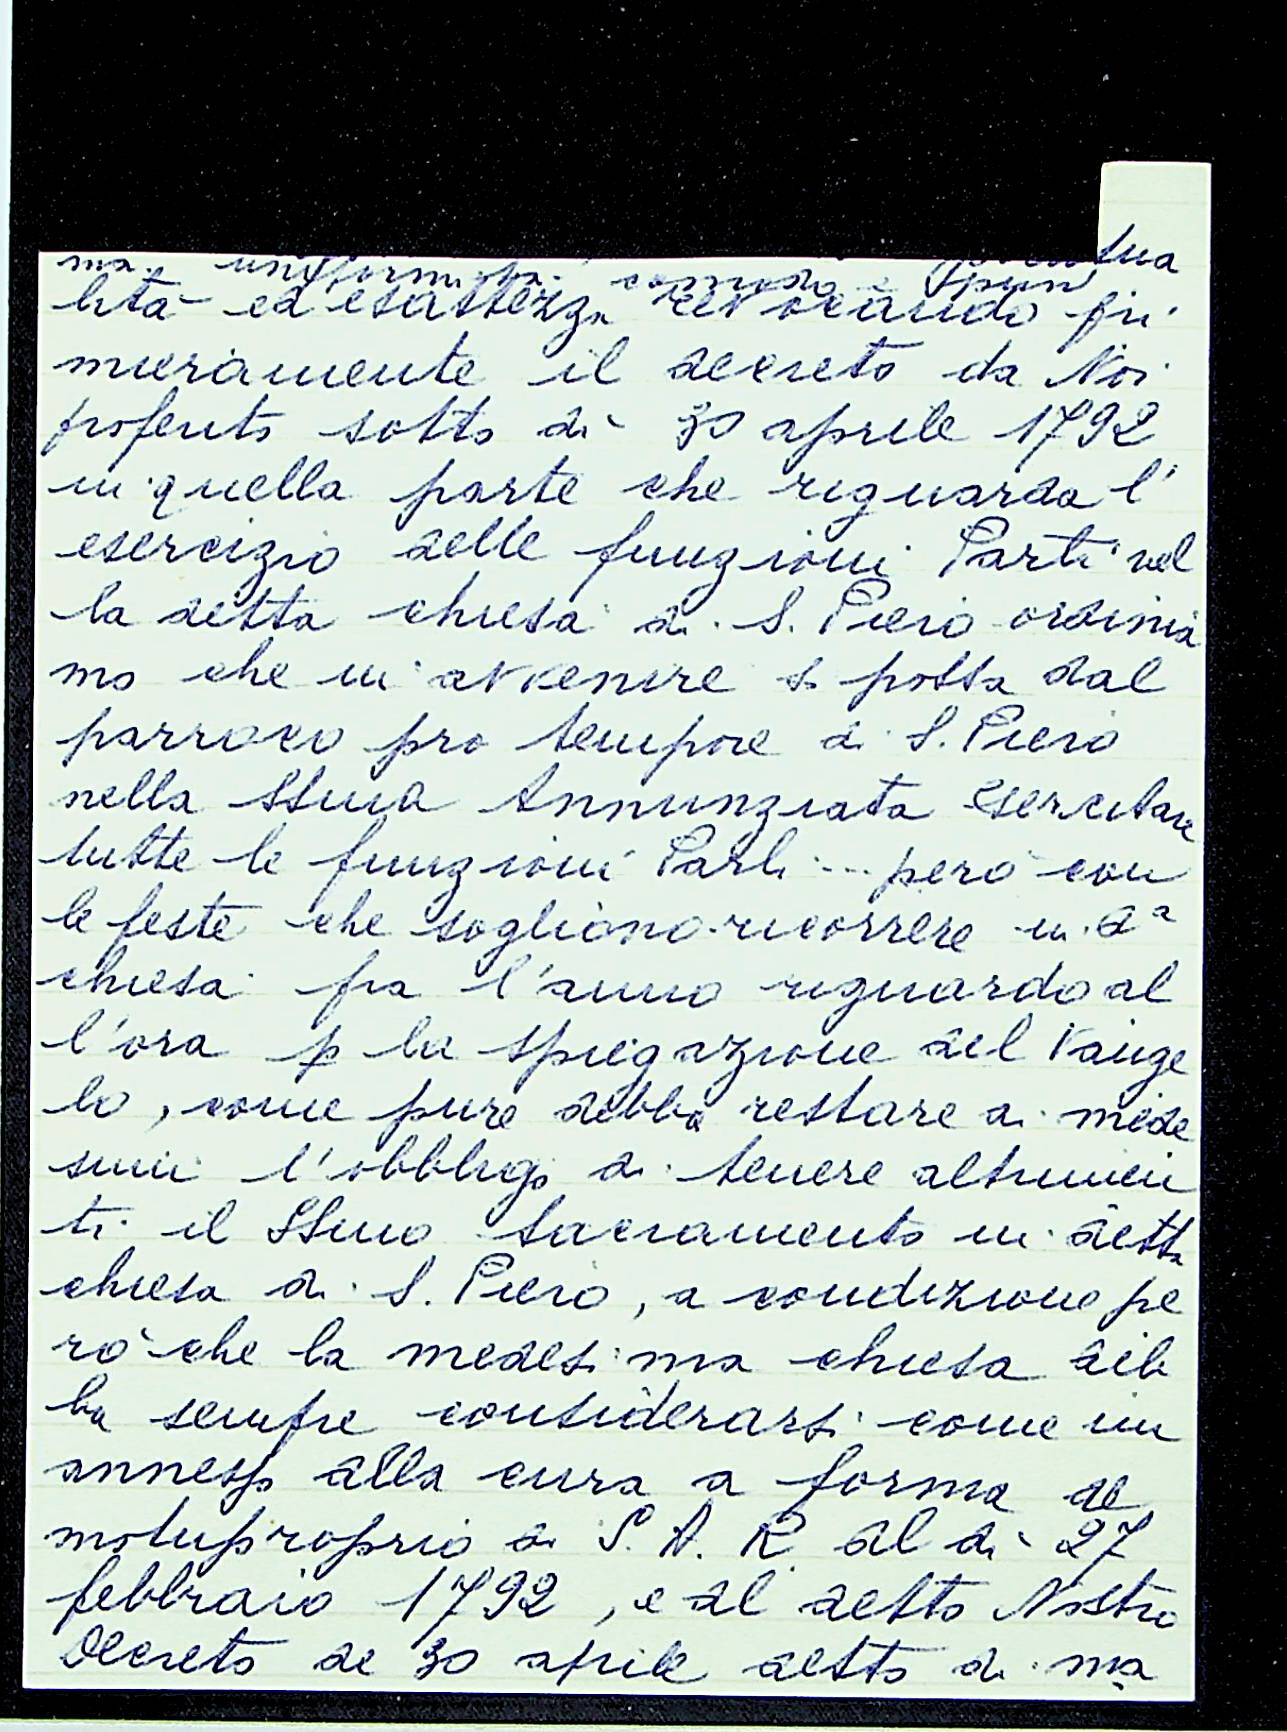 tua
ma uniformità comoda pun
lità ed esattezza revocando pri
mieramente il decreto da Noi
proferito sotto dì 30 aprile 1792
in quella parte che riguarda l'
esercizio delle funzioni Parti nel
la detta chiesa di S. Piero ordinia
mo che in avvenire si possa dal
parroco pro tempore di S. Piero
nella SSma Annunziata esercitare
tutte le funzioni Parli ... però con
le feste che sogliono ricorrere in da
chiesa fra l'anno riguardo al
l'ora p la spiegazione del Vange
lo, come pure debba restare ai mede
simi l'obbligo di tenere altrimen
ti il SSmo Sacramento in detta
chiesa di S. Piero, a condizione pe
rò che la medesima chiesa deb
ba sempre considerarsi come un
annesso alla cura a forma del
motuproprio di S. A. R. al dì 27
febbraio 1792, e al detto Nostro
Decreto de 30 aprile detto di ma